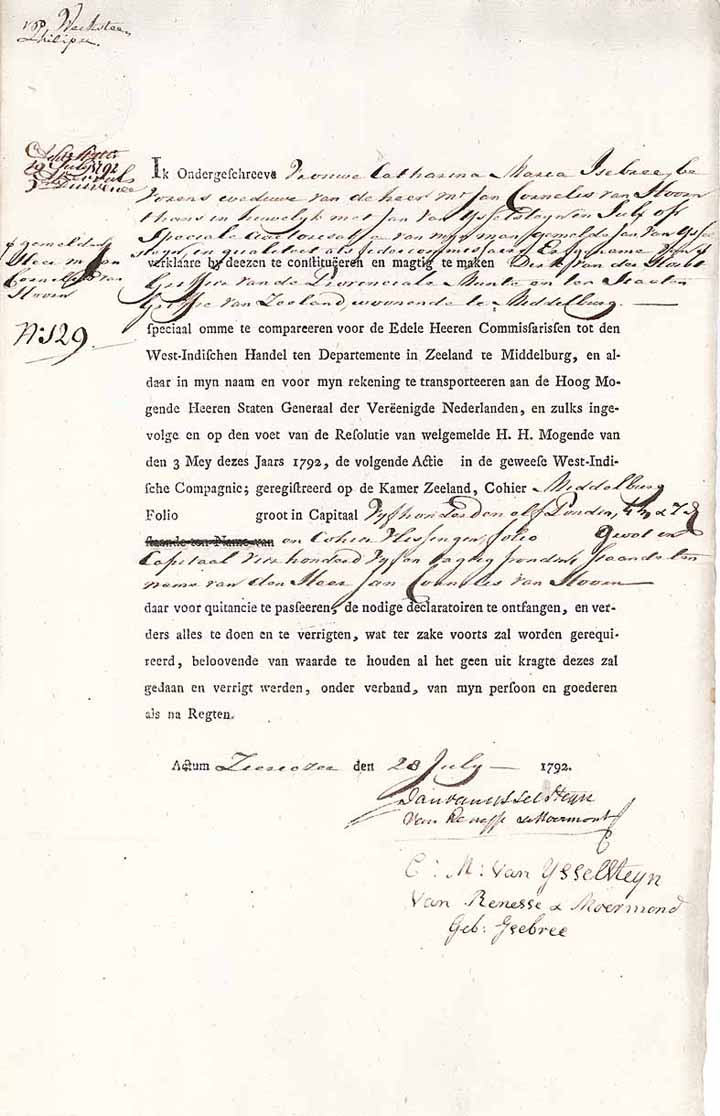 Philipse
Ik Ondergeschreeve Vrouwe Catharina Maria Isebree be
vorens weduwe van de heer mr Jan Cornelis van Hoorn
thans in huwelyk met Jan van Ysselsteyn
Speciale van myn man gemelde Jan van Yssel
steyn, in qualiteit als
verklaare by deezen te constitueeren en magtig te maken Dirk van der
van de Provinciale Munte en ter Staaten
van Zeeland, woonende te Middelburg.
gemelde
Heer
Cornelis van
N: 129
speciaal omme te compareeren voor de Edele Heeren Commissarissen tot den
West-Indischen Handel ten Departemente in Zeeland te Middelburg, en al-
daar in myn naam en voor myn rekening te transporteeren aan de Hoog Mo-
gende Heeren Staten Generaal der Verëenigde Nederlanden, en zulks inge-
volge en op den voet van de Resolutie van welgemelde H. H. Mogende van
den 3 Mey dezes Jaars 1792, de volgende Actie in de geweese West-Indi-
sche Compagnie; geregistreerd op de Kamer Zeeland, Cohier Middelburg
Folio groot in Capitaal Vyfhonderd en elf Ponden,
staande ten Name van en Cohier Vlissingen, folio Groot in
Capitaal vier honderd vyf en tagtig ponden staande ten
name van den Heer Jan Cornelis van Hoorn
daar voor quitancie te passeeren, de nodige declaratoiren te ontfangen, en ver-
ders alles te doen en te verrigten, wat ter zake voorts zal worden gerequi-
reerd, beloovende van waarde te houden al het geen uit kragte dezes zal
gedaan en verrigt werden, onder verband, van myn persoon en goederen
als na Regten.
Actum Zierikzee den 28 July 1792.
Jan van Ysselsteyn
van Renesse & Moermont
C: M: van Ysselsteyn
van Renesse & Moermond
Geb: Isebree